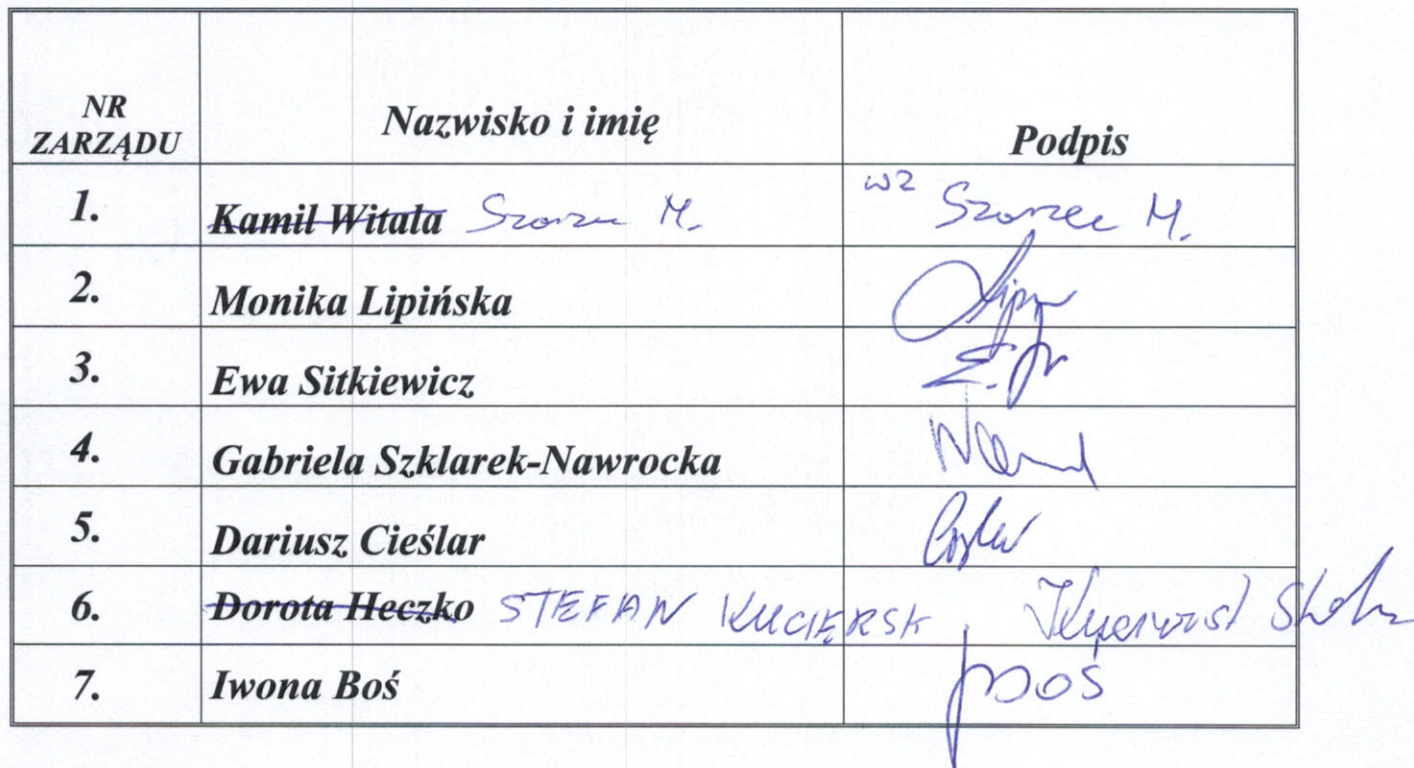 NR ZARZĄDU Nazwisko i imię Podpis
1. Kamil Witala Szarzec M. wz Szarzec M.
2. Monika Lipińska
3. Ewa Sitkiewicz
4. Gabriela Szklarek-Nawrocka
5. Dariusz Cieślar
6. Dorota Heczko STEFAN
7. Iwona Boś Boś